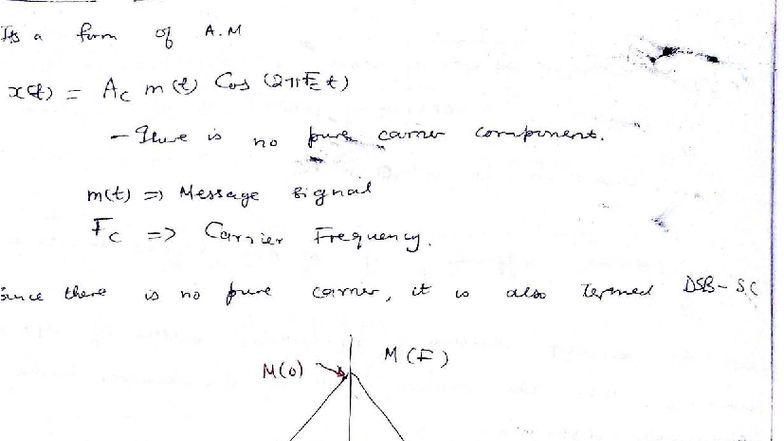 Its a form of A.M
x(t) = Ac m(t) Cos (2πFc t)
- There is no pure carrier component.
m(t) => Message signal
Fc => Carrier Frequency.
Since there is no pure carrier, it is also termed DSB-SC
M(F)
M(0)